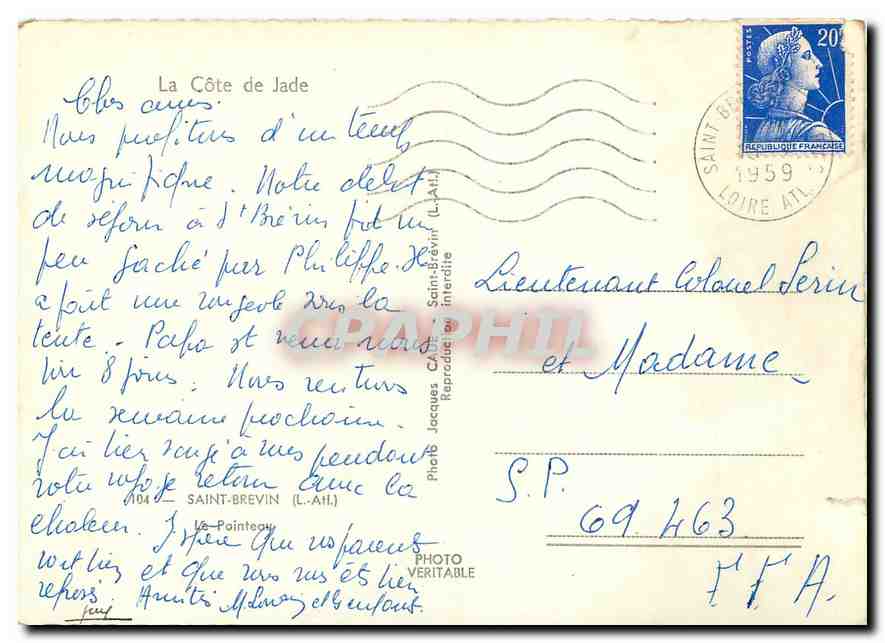 La Côte de Jade
Chers amis.
Nous profitons d'un temps
magnifique. Notre début
de séjour à St Brévin fut un
peu gaché par Philippe. Il
a fait une rougeole sous la
tente. Papa est venu nous
voir 8 jours. Nous rentrons
la semaine prochaine.
J'ai bien songé à vous pendant
votre voyage retour avec la
chaleur. J'espère que vos parents
vont bien et que vous vous êtes bien
reposés. Amitiés et enfants.
104 — SAINT-BREVIN (L.-Atl.)
Le Pointeau
PHOTO
VERITABLE
Photo Jacques CAUE - Saint-Brévin (L.-Atl.)
Reproduction interdite
CPAPHIL
POSTES
20F
REPUBLIQUE FRANÇAISE
SAINT BR
1959
LOIRE ATL.
Lieutenant Colonel Serin
et Madame
S.P.
69.463
F F A.